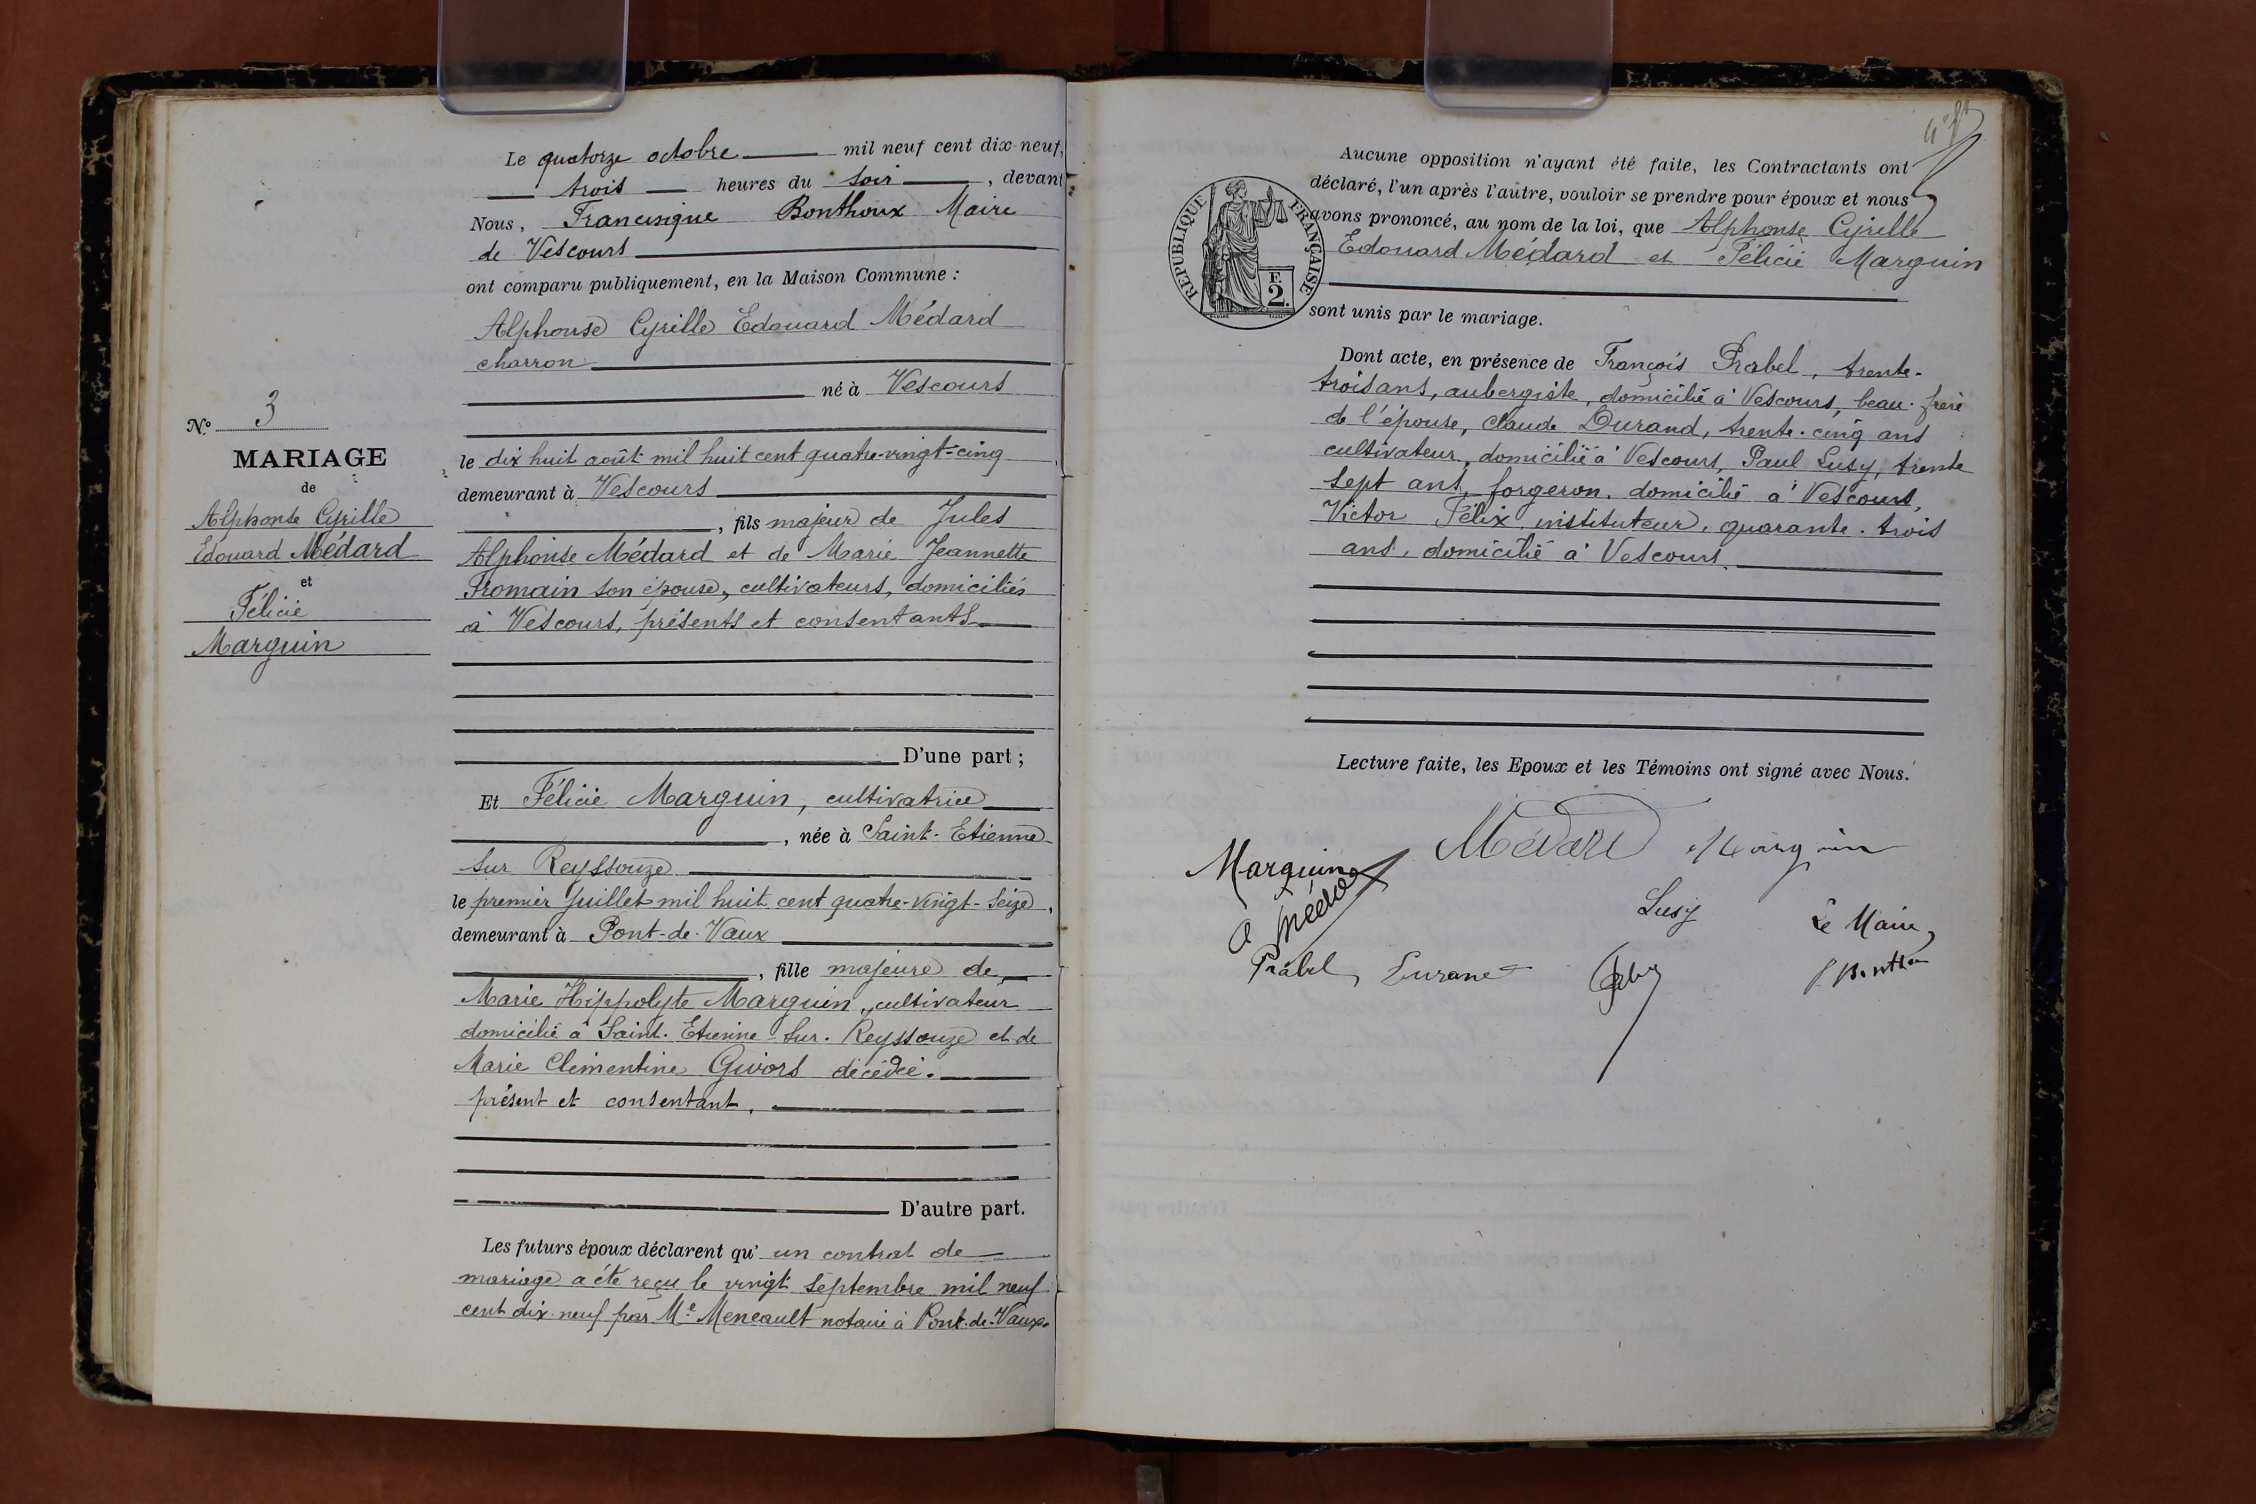 Le quatorze octobre mil neuf cent dix-neuf,
trois heures du soir, devant
Nous, Francisque Bonthoux Maire
de Vescours
ont comparu publiquement, en la Maison Commune :
Alphonse Cyrille Edouard Médard
charron
né à Vescours
le dix huit août mil huit cent quatre-vingt-cinq
demeurant à Vescours
, fils majeur de Jules
Alphonse Médard et de Marie Jeannette
Fromain son épouse, cultivateurs, domiciliés
à Vescours, présents et consentants
D'une part ;
Et Félicie Marguin, cultivatrice
, née à Saint-Etienne
sur Reyssouze
le premier juillet mil huit cent quatre-vingt-seize,
demeurant à Pont-de-Vaux
, fille majeure de
Marie Hippolyte Marguin, cultivateur
domicilié à Saint-Etienne-sur-Reyssouze et de
Marie Clémentine Givors décédée.
présent et consentant.
D'autre part.
Les futurs époux déclarent qu'un contrat de
mariage a été reçu le vingt septembre mil neuf
cent dix-neuf par Me Meneault notaire à Pont-de-Vaux.
No 3
MARIAGE
de
Alphonse Cyrille
Edouard Médard
et
Félicie
Marguin
Aucune opposition n'ayant été faite, les Contractants ont
déclaré, l'un après l'autre, vouloir se prendre pour époux et nous
avons prononcé, au nom de la loi, que Alphonse Cyrille
Edouard Médard et Félicie Marguin
sont unis par le mariage.
RÉPUBLIQUE FRANÇAISE
F.
2.
Dont acte, en présence de François Prabel, trente-
trois ans, aubergiste, domicilié à Vescours, beau-frère
de l'épouse, Claude Durand, trente-cinq ans
cultivateur, domicilié à Vescours, Paul Lusy, trente
sept ans, forgeron, domicilié à Vescours,
Victor Félix instituteur, quarante-trois
ans, domicilié à Vescours.
Lecture faite, les Epoux et les Témoins ont signé avec Nous.
Médard Marguin
Marguin
Lusy Le Maire,
Prabel Durand